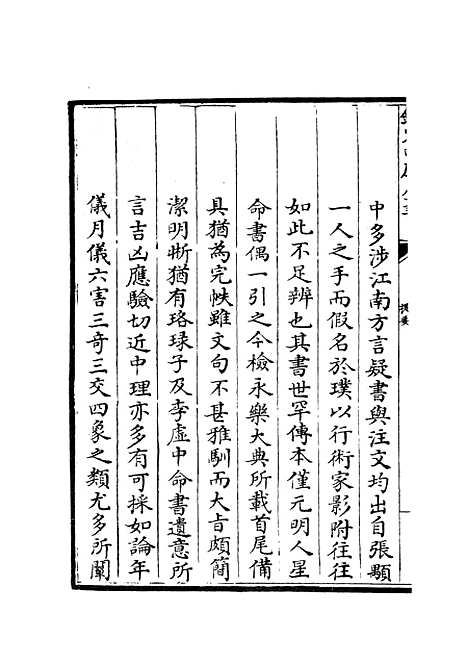 中多涉江南方言疑書與注文均出自張顒
一人之手而假名於璞以行術家影附往往
如此不足辨也其書世罕傳本僅元明人星
命書偶一引之今檢永樂大典所載首尾備
具猶為完帙雖文句不甚雅馴而大㫖頗簡
潔明晰猶有珞琭子及李虛中命書遺意所
言吉凶應驗切近中理亦多有可採如論年
儀月儀六害三奇三交四象之類尤多所闡
提要